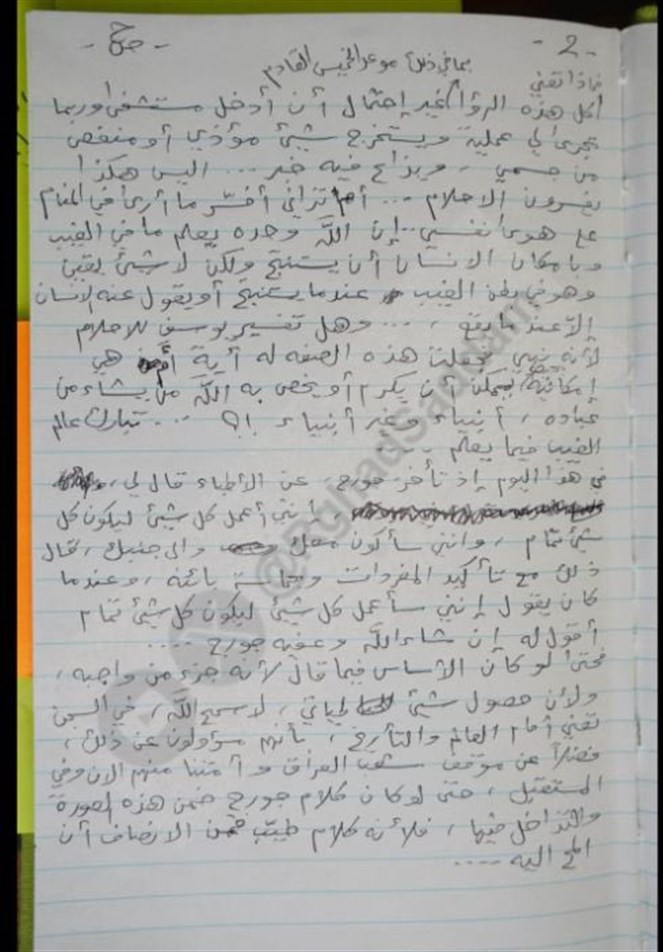 - 2 - - ص ج -
بما في ذلك موعد الخميس القادم
فماذا تعني
كل هذه الرؤا غير إحتمال أن أدخل مستشفى وربما
تجرى لي عملية ويستخرج شيئ مؤذي أو منغص
من جسمي ، ويذاع فيه خبر ... اليس هكذا
يفسرون الاحلام ... أم تراني أفسّر ما أرى في المنام
على هوى نفسي .. إن الله وحده يعلم ما في الغيب
وبامكان الانسان أن يستنتج ولكن لا شيئ يقين
وهو في بطن الغيب عندما يستنتج أو يقول عنه الانسان
إلا عندما يقع ، ... وهل تفسير يوسف للاحلام
لأنه نبي فجعلت هذه الصفه له أية أم هي
إمكانية يمكن أن يكرم أو يخص به الله من يشاء من
عباده ، أنبياء وغير أنبياء !؟ ... تبارك عالم
الغيب فيما يعلم ...
في هذا اليوم إذ تأخر جورج ، عن الأطباء قال لي ،
إنني أعمل كل شيئ ليكون كل
شيئ تمام ، وانني سأكون معك والى جنبك ، قال
ذلك مع تأكيد المفردات وبحماسة بائنه ، وعندما
كان يقول إنني سأعمل كل شيئ ليكون كل شيئ تمام
أقول له إن شاء الله وعفيه جورج ....
فحتى لو كان الأساس فيما قال لأنه جزء من واجبه ،
ولأن حصول شيئ لحياتي ، لا سمح الله ، في السجن
تعني أمام العالم والتأريخ ، بأنهم مسؤولون عن ذلك ،
فضلاً عن موقف شعب العراق وأمتنا منهم الان وفي
المستقبل ، حتى لو كان كلام جورج ضمن هذه الصورة
والتداخل فيها ، فلأنه كلام طيّب فمن الانصاف أن
المح اليه ....
@RghadSaddam